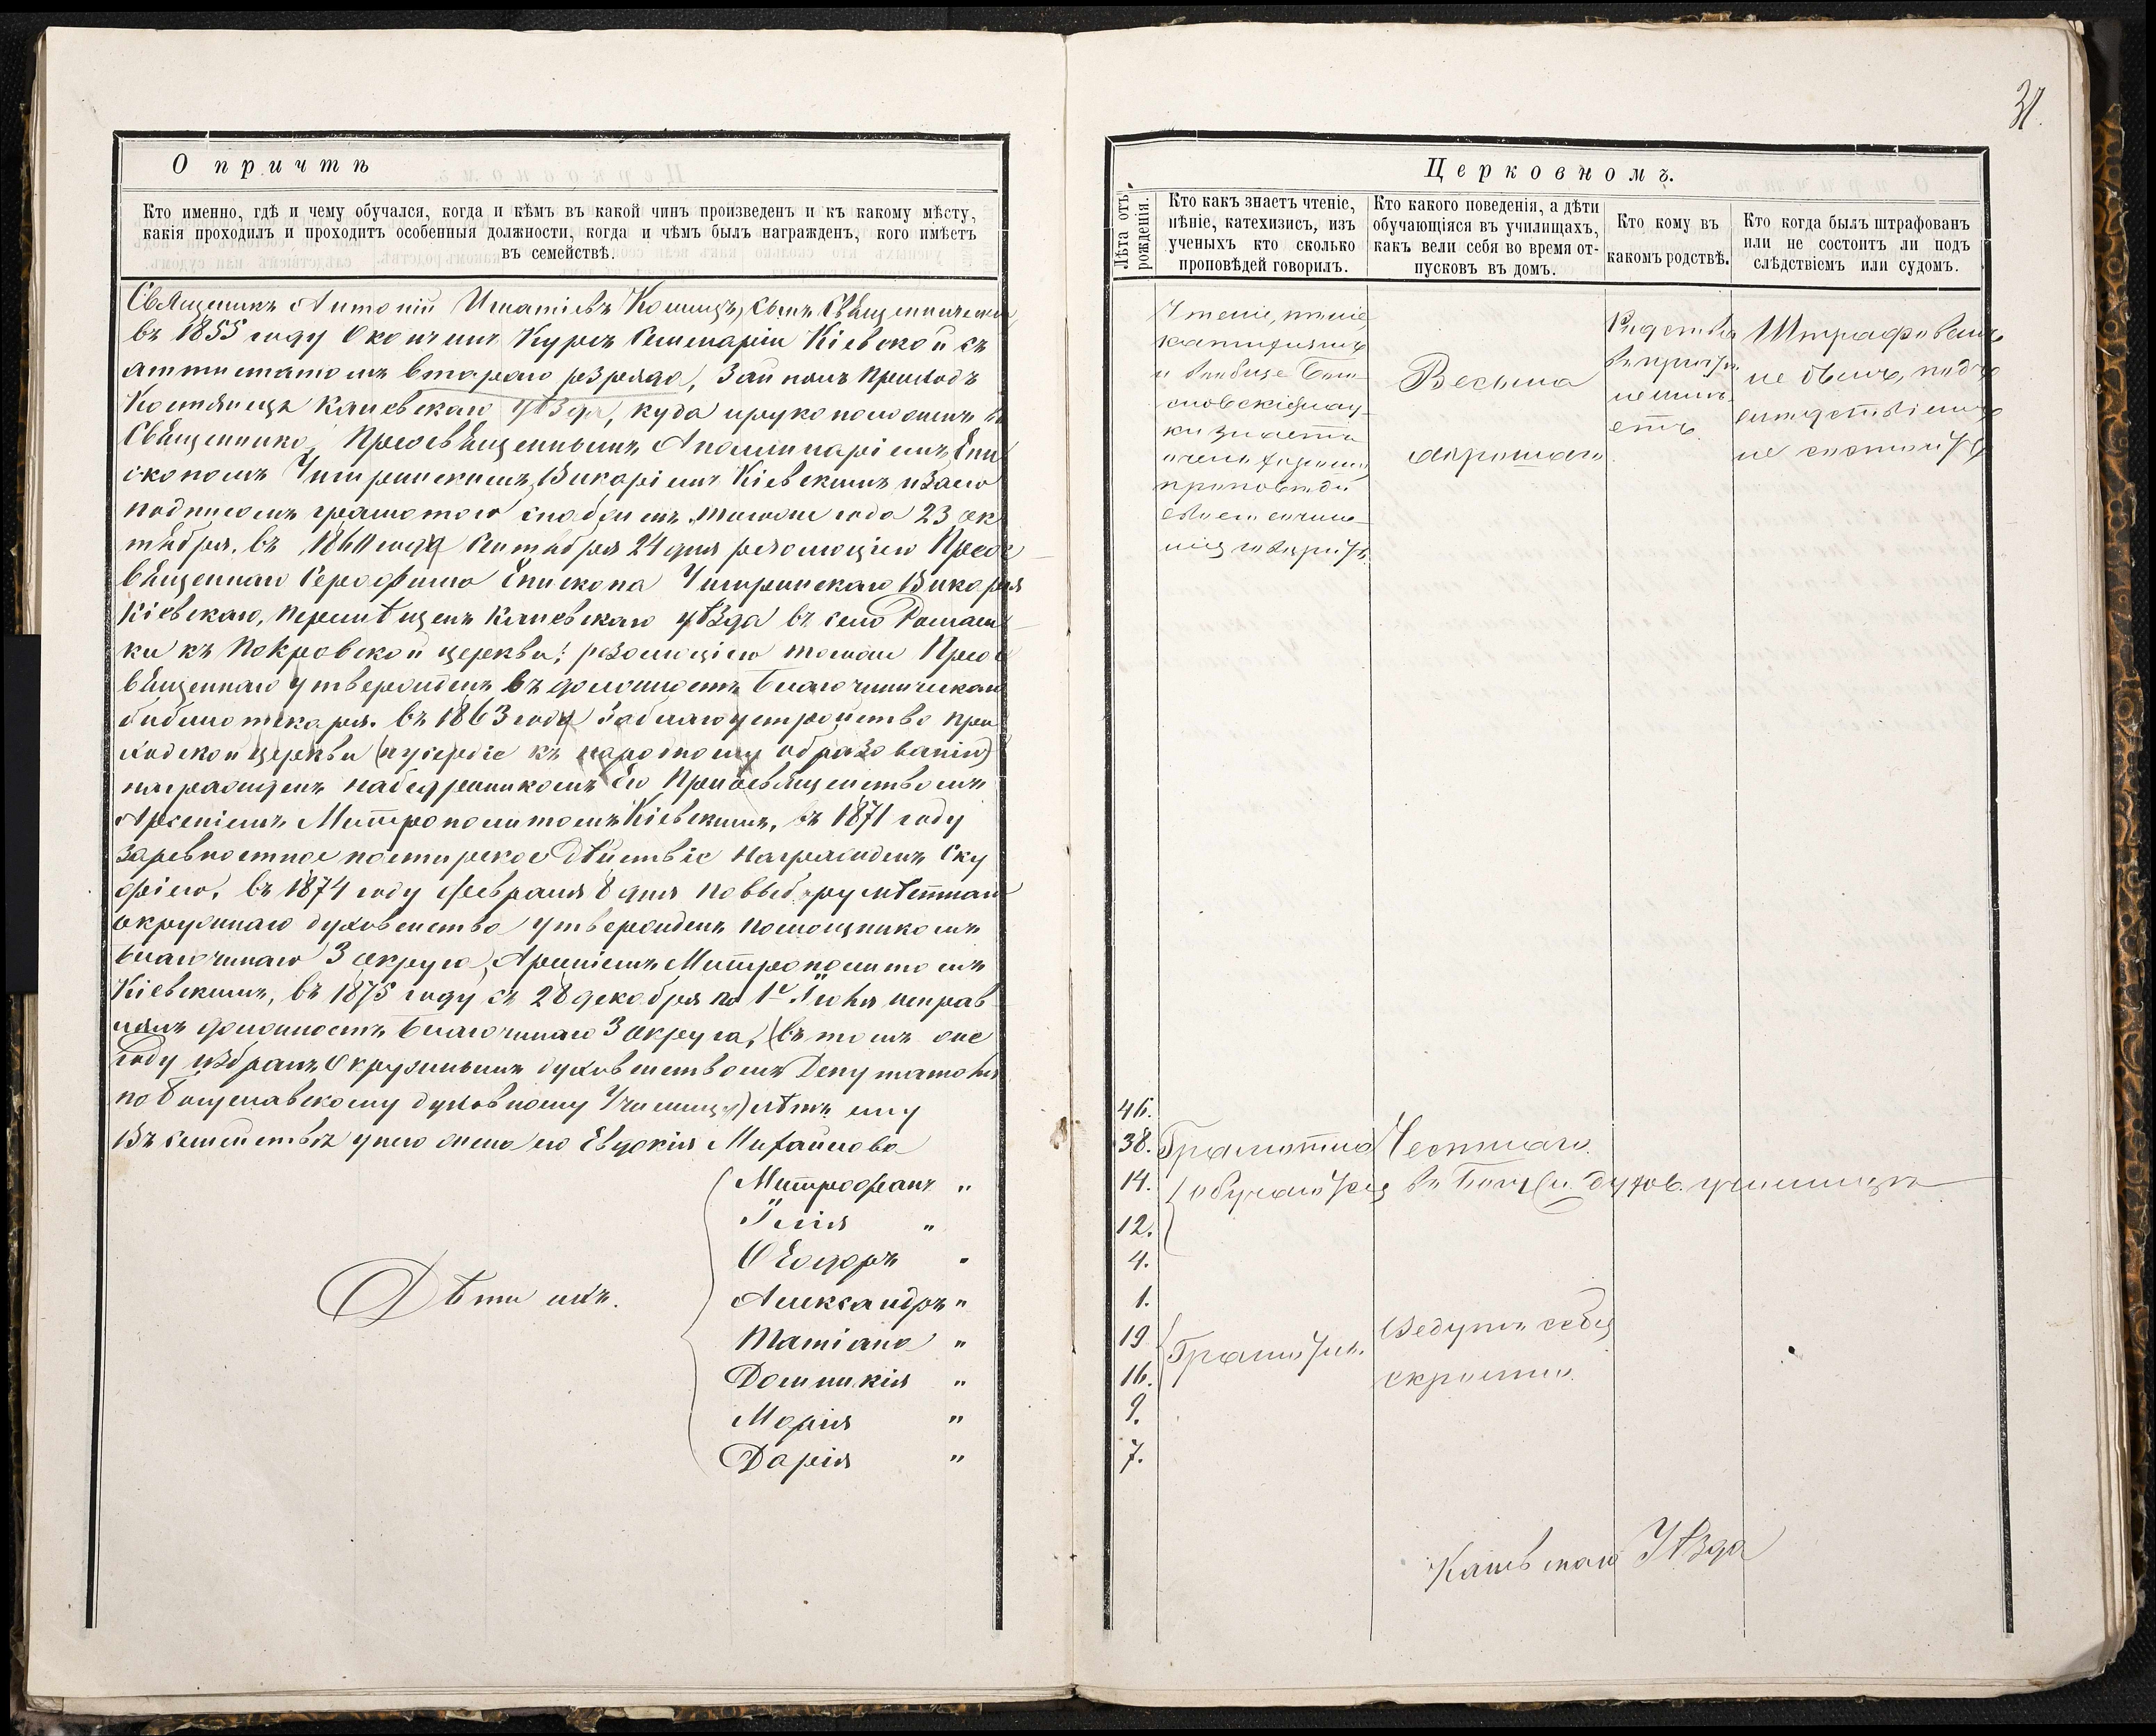 О причтѣ
Кто именно, гдѣ и чему обучался, когда и кѣмъ въ какой чинъ произведенъ и къ какому мѣсту,
какія проходилъ и проходитъ особенныя должности, когда и чѣмъ былъ награжденъ, кого имѣетъ
въ семействѣ.
Священникъ Антоній Игнатіевъ Кошицъ, сынъ Священническій
въ 1855 году Окончилъ Курсъ Семинаріи Кіевской съ
аттестатомъ втараго разряда, Занялъ приходъ
Костянца Каневскаго уѣзда, куда и рукоположенъ въ
Священника, Преосвященнымъ Аполлинаріемъ Епи
скопомъ Чигринскимъ, Викаріемъ Кіевскимъ и за его
подписомъ грамотою снабженъ тогоже года 23 ок
тября. въ 1860 года Сентября 24 дня резолюціею Преос
вященнаго Серафима Епископа Чигринскаго Викарія
Кіевскаго, перемѣщенъ Каневскаго уѣзда въ село Ромаш
ки къ Покровской церкви; резолюціею тогоже Преос
вященнаго утвержденъ въ должность благочинническаго
библіотекаря. въ 1863 года За благоустройство при
ходской церкви (и усердіе къ народному образованію)
награжденъ набедренникомъ Его Преосвященствомъ
Арсеніемъ Митрополитомъ Кіевскимъ, въ 1871 году
За ревностное пастырское дѣйствіе Награжденъ Ску
фіею, въ 1874 году февраля 8 дня по выбору мѣстнаго
окружнаго духовенства утвержденъ помощникомъ
благочиннаго 3 округа, Арсеніемъ Митрополитомъ
Кіевскимъ, въ 1875 году съ 28 декабря по 1е Іюня исправ
лялъ должность благочиннаго 3 округа, (въ томъ же
году избранъ Окружнымъ духовенствомъ Депутатомъ
по Богуславскому духовному Училищу) лѣтъ ему
Въ семействѣ у него жена его Евдокія Михайлова
Дѣти ихъ.
Митрофанъ "
Іулія "
Ѳеодоръ "
Александръ "
Татіана "
Домникія "
Марія "
Дарія "
31.
Церковномъ.
Лѣта отъ рожденія.
Кто какъ знаетъ чтеніе,
пѣніе, катехизисъ, изъ
ученыхъ кто сколько
проповѣдей говорилъ.
Кто какого поведенія, а дѣти
обучающіяся въ училищахъ,
какъ вели себя во время от-
пусковъ въ домъ.
Кто кому въ
какомъ родствѣ.
Кто когда былъ штрафованъ
или не состоитъ ли подъ
слѣдствіемъ или судомъ.
Чтеніе, пѣніе
катихизисъ
и вообще Бого-
словскія нау-
ки знаетъ
очень хорошо
проповѣди
своего сочине-
нія говоритъ.
Весьма
хорошаго.
Родства
въ причтѣ
не имѣ-
етъ.
Штрафованъ
не былъ, подъ
слѣдствіемъ
не состоитъ
46.
38. Грамотна Честнаго.
14. обучаются въ Богус. духов. училищѣ
12.
4.
1.
19
16. Грамотн. Ведутъ себя
скромно.
9.
7.
Каневскаго Уѣзда